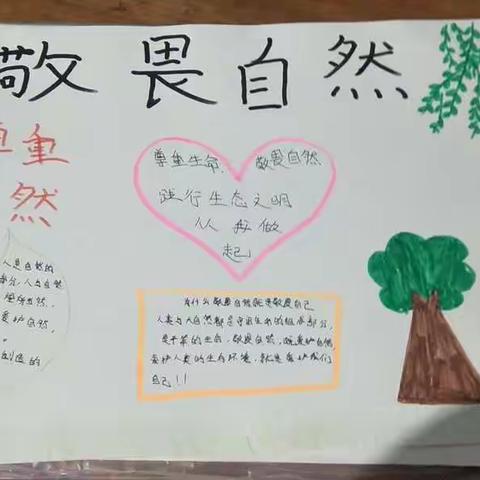 敬畏自然
尊重
然
尊重生命、敬畏自然
践行生态文明
从我做
起
人是自然的
部分,人与自然
爱护自然,
创造的
为什么敬畏自然就是敬畏自己
人类与大自然都是宇宙生命的组成部分,
是平等的生命,敬畏自然,既爱护自然
爱护人类的生存环境,就是爱护我们
自己!!